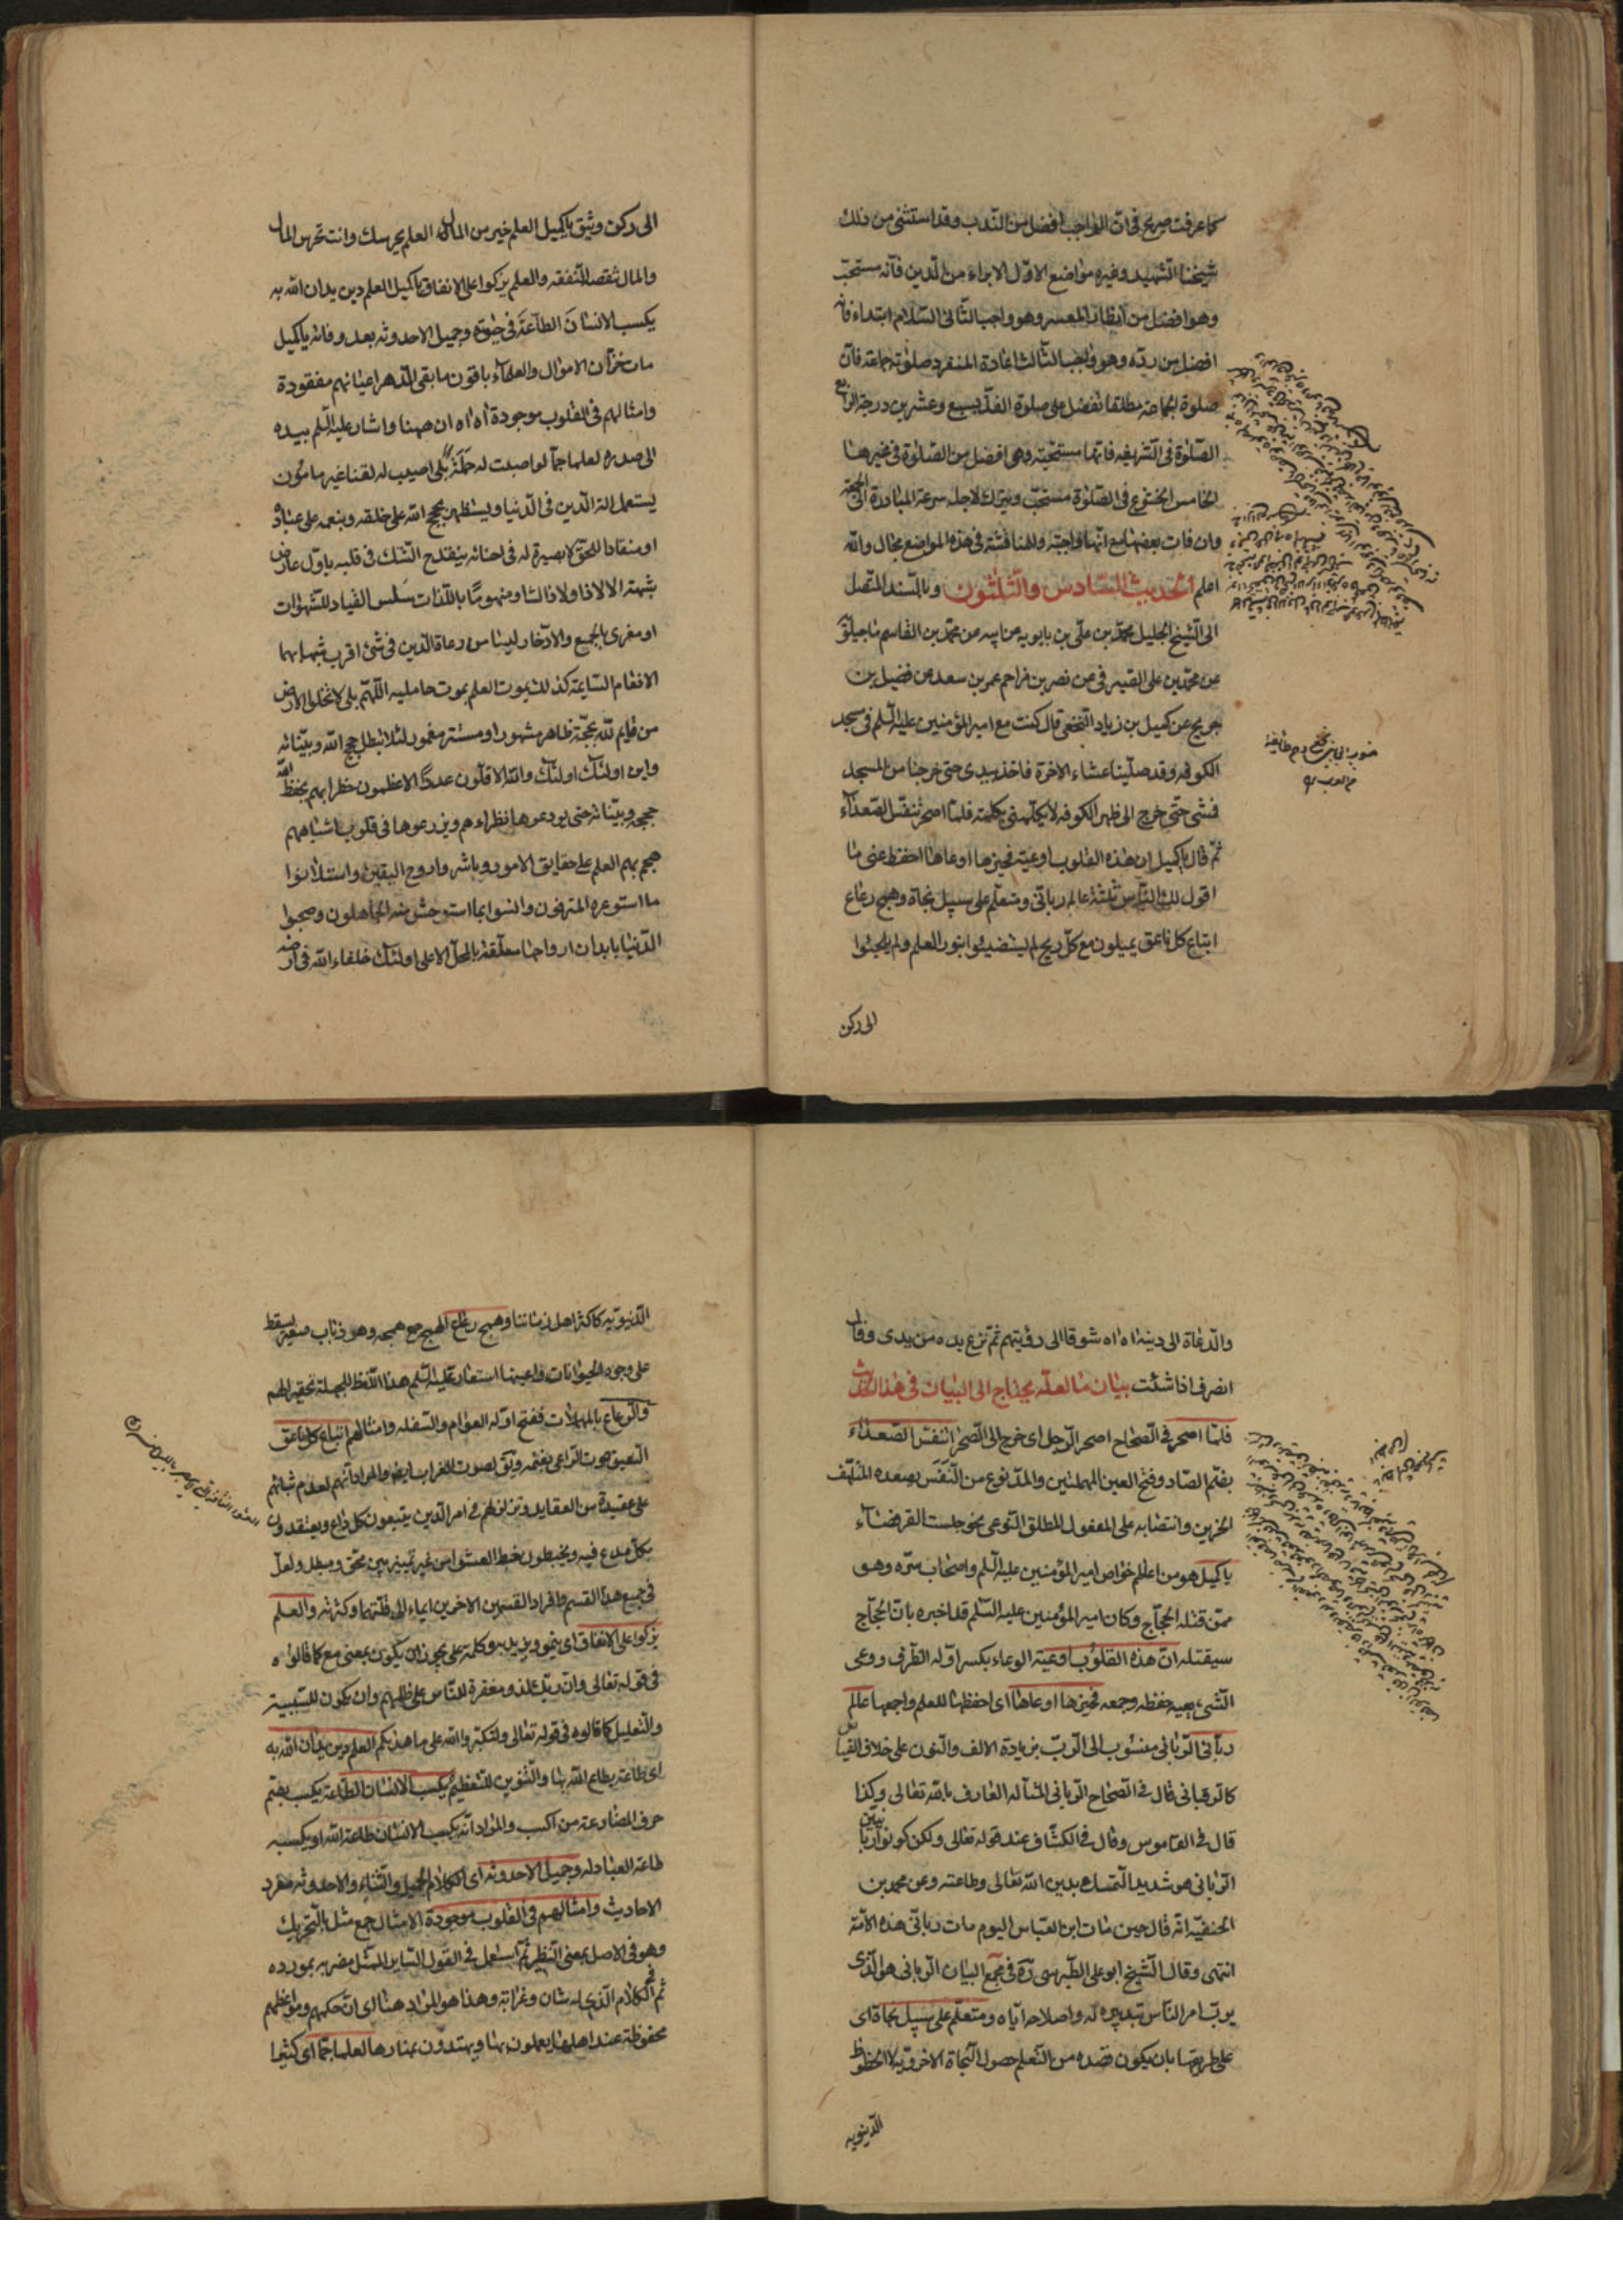 كما عرفت صريح في ان الواجب افضل من الندب وقد استثنى من ذلك
شيخنا الشهيد وغيره مواضع الاول الابراء من الدين فانه مستحب
وهو افضل من انظار المعسر وهو واجب الثاني السلام ابتداء فانه
افضل من رده وهو واجب الثالث اعادة المنفرد صلوته جماعة فان
صلوة الجماعة مطلقا تفضل على صلوة الفذ بسبع وعشرين درجة الرابع
الصلوة في الشريفه فانها مستحبة وهي افضل من الصلوة في غيرها
الخامس الخشوع في الصلوة مستحب ويترك لاجله سرعة المبادرة الى الجمعة
وان فات بعضها مع انها واجبة وللمناقشة في هذه المواضع مجال والله
اعلم الحديث السادس والثلثون وبالسند المتصل
الى الشيخ الجليل محمد بن علي بن بابويه عن ابيه عن محمد بن القاسم ماجيلويه
عن محمد بن علي الصيرفي عن نصر بن مزاحم عمر بن سعد عن فضيل بن
خديج عن كميل بن زياد النخعي قال كنت مع امير المؤمنين عليه السلم في مسجد
الكوفه وقد صلينا عشاء الاخرة فاخذ بيدى حتى خرجنا من المسجد
فمشى حتى خرج الى ظهر الكوفه لا يكلمني بكلمة فلما اصحر تنفس الصعداء
ثم قال يا كميل ان هذه القلوب اوعية فخيرها اوعاها احفظ عني ما
اقول لك الناس ثلثة عالم رباني ومتعلم على سبيل نجاة وهمج رعاع
اتباع كل ناعق يميلون مع كل ريح لم يستضيئوا بنور العلم ولم يلجئوا
الى ركن
الى ركن وثيق يا كميل العلم خير من المال العلم يحرسك وانت تحرس المال
والمال تنقصه النفقه والعلم يزكوا على الانفاق يا كميل العلم دين يدان الله به
يكسب الانسان الطاعة في حيوته وجميل الاحدوثه بعد وفاته يا كميل
مات خزان الاموال والعلماء باقون ما بقى الدهر اعيانهم مفقودة
وامثالهم في القلوب موجودة اه اه ان ههنا واشار عليه السلم بيده
الى صدره لعلما جما لو اصبت له حملة بلى اصيب له لقنا غير مامون
يستعمل الة الدين في الدنيا ويستظهر بحجج الله على خلقه وبنعمه على عباده
او منقادا للحق لا بصيرة له في احنائه ينقدح الشك في قلبه باول عارض
شبهة الا لاذا ولا ذاك او منهوما باللذات سلس القياد للشهوات
او مغرى بالجمع والادخار ليسا من رعاة الدين في شئ اقرب شبها بهما
الانعام السايمة كذلك يموت العلم بموت حامليه اللهم بلى لا تخلوا الارض
من قايم لله بحجة ظاهر مشهور او مستتر مغمور لئلا تبطل حجج الله وبيناته
واين اولئك اولئك والله الاقلون عددا الاعظمون خطرا بهم يحفظ الله
حججه وبيناته حتى يودعوها نظراءهم ويزرعوها في قلوب اشباههم
هجم بهم العلم على حقايق الامور وباشروا روح اليقين واستلانوا
ما استوعره المترفون وانسوا بما استوحش منه الجاهلون وصحبوا
الدنيا بابدان ارواحها معلقة بالمحل الاعلى اولئك خلفاء الله في ارضه
والدعاة الى دينه اه اه شوقا الى رؤيتهم ثم نزع يده من يدى وقال
انصرف اذا شئت بيان ما لعله يحتاج الى البيان في هذا الحديث
فلما اصحر في الصحاح اصحر الرجل اى خرج الى الصحراء تنفس الصعداء
بضم الصاد وفتح العين المهملتين والمد نوع من التنفس يصعده المتلهف
الحزين وانتصابه على المفعول المطلق النوعى نحو جلست القرفصاء
يا كميل هو من اعاظم خواص امير المؤمنين عليه السلم واصحاب سره وهو
ممن قتله الحجاج وكان امير المؤمنين عليه السلم قد اخبره بان الحجاج
سيقتله ان هذه القلوب اوعية الوعاء بكسر اوله الظرف ووعى
الشئ يعيه حفظه وجمعه فخيرها اوعاها اى احفظها للعلم واجمعها عالم
رباني الرباني منسوب الى الرب بزيادة الالف والنون على خلاف القياس
كالرقباني قال في الصحاح الرباني المتاله العارف بالله تعالى وكذا
قال في القاموس وقال في الكشاف عند قوله تعالى ولكن كونوا ربانيين
الرباني هو شديد التمسك بدين الله تعالى وطاعته وعن محمد بن
الحنفيه انه قال حين مات ابن العباس اليوم مات رباني هذه الامة
انتهى وقال الشيخ ابو على الطبرسى ره في مجمع البيان الرباني هو الذى
يرب امر الناس بتدبيره له واصلاحه اياه ومتعلم على سبيل نجاة اى
على طريقها بان يكون قصده من التعلم حصول النجاة الاخروية لا الحظوظ
الدنيويه
الدنيويه كاكثر اهل زماننا وهمج رعاع الهمج جمع همجه وهو ذباب صغير يسقط
على وجوه الحيوانات واعينها استعار عليه السلم هذا اللفظ للجهلة تحقيرا لهم
والرعاع بالمهملات ففتح اوله العوام والسفله وامثالهم اتباع كل ناعق
النعيق صوت الراعى بغنمه ويق بصوت الغراب ايضا والمراد انهم لعدم ثباتهم
على عقيدة من العقايد وتزلزلهم في امر الدين يتبعون كل داع ويعتقدون
بكل مدع فيه ويخبطون خبط العشوا من غير تمييز بين محق ومبطل ولعل
في جميع هذا القسم وافراد القسمين الاخرين ايماء الى قلتهما وكثرته والعلم
يزكوا على الانفاق اى ينمو ويزيد به وكلمة على يجوز ان يكون بمعنى مع كما قالوه
في قوله تعالى وان ربك لذو مغفرة للناس على ظلمهم وان يكون للسببية
والتعليل كما قالوه في قوله تعالى ولتكبروا الله على ما هديكم العلم دين يدان الله به
اى طاعة يطاع الله بها والتنوين للتعظيم يكسب الانسان الطاعة يكسب بضم
حرف المضارعة من اكسب والمراد انه يكسب الانسان طاعة الله او يكسبه
طاعة العباد له وجميل الاحدوثه اى الكلام الجميل والثناء والاحدوثه مفرد
الاحاديث وامثالهم في القلوب موجودة الامثال جمع مثل بالتحريك
وهو في الاصل بمعنى النظير ثم استعمل في القول الساير الممثل مضربه بمورده
ثم في الكلام الذى له شان وغرابة وهذا هو المراد هنا اى ان حكمهم ومواعظهم
محفوظة عند اهلها يعملون بها ويهتدون بمنارها لعلما جما اى كثيرا